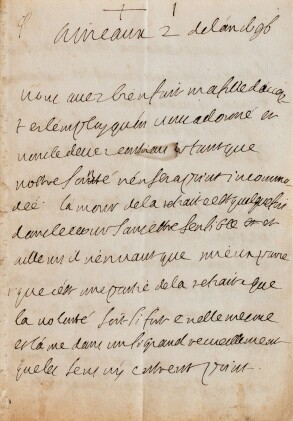 +
2 de lan 1696
vous avez bien fait ma fille daccep
ter lemploy quon vous a donné et
vous le devez tant que
nostre santé nen sera point incommo
dée lamour de la retraite est quelquefois
dans le coeur sans estre sensible et
ailleurs il nen vaut que mieux parce
que cest une partie de la retraite que
la volonté soit si fort en elle mesme
et lame dans un si grand recueillement
que les sens ny entrent point.